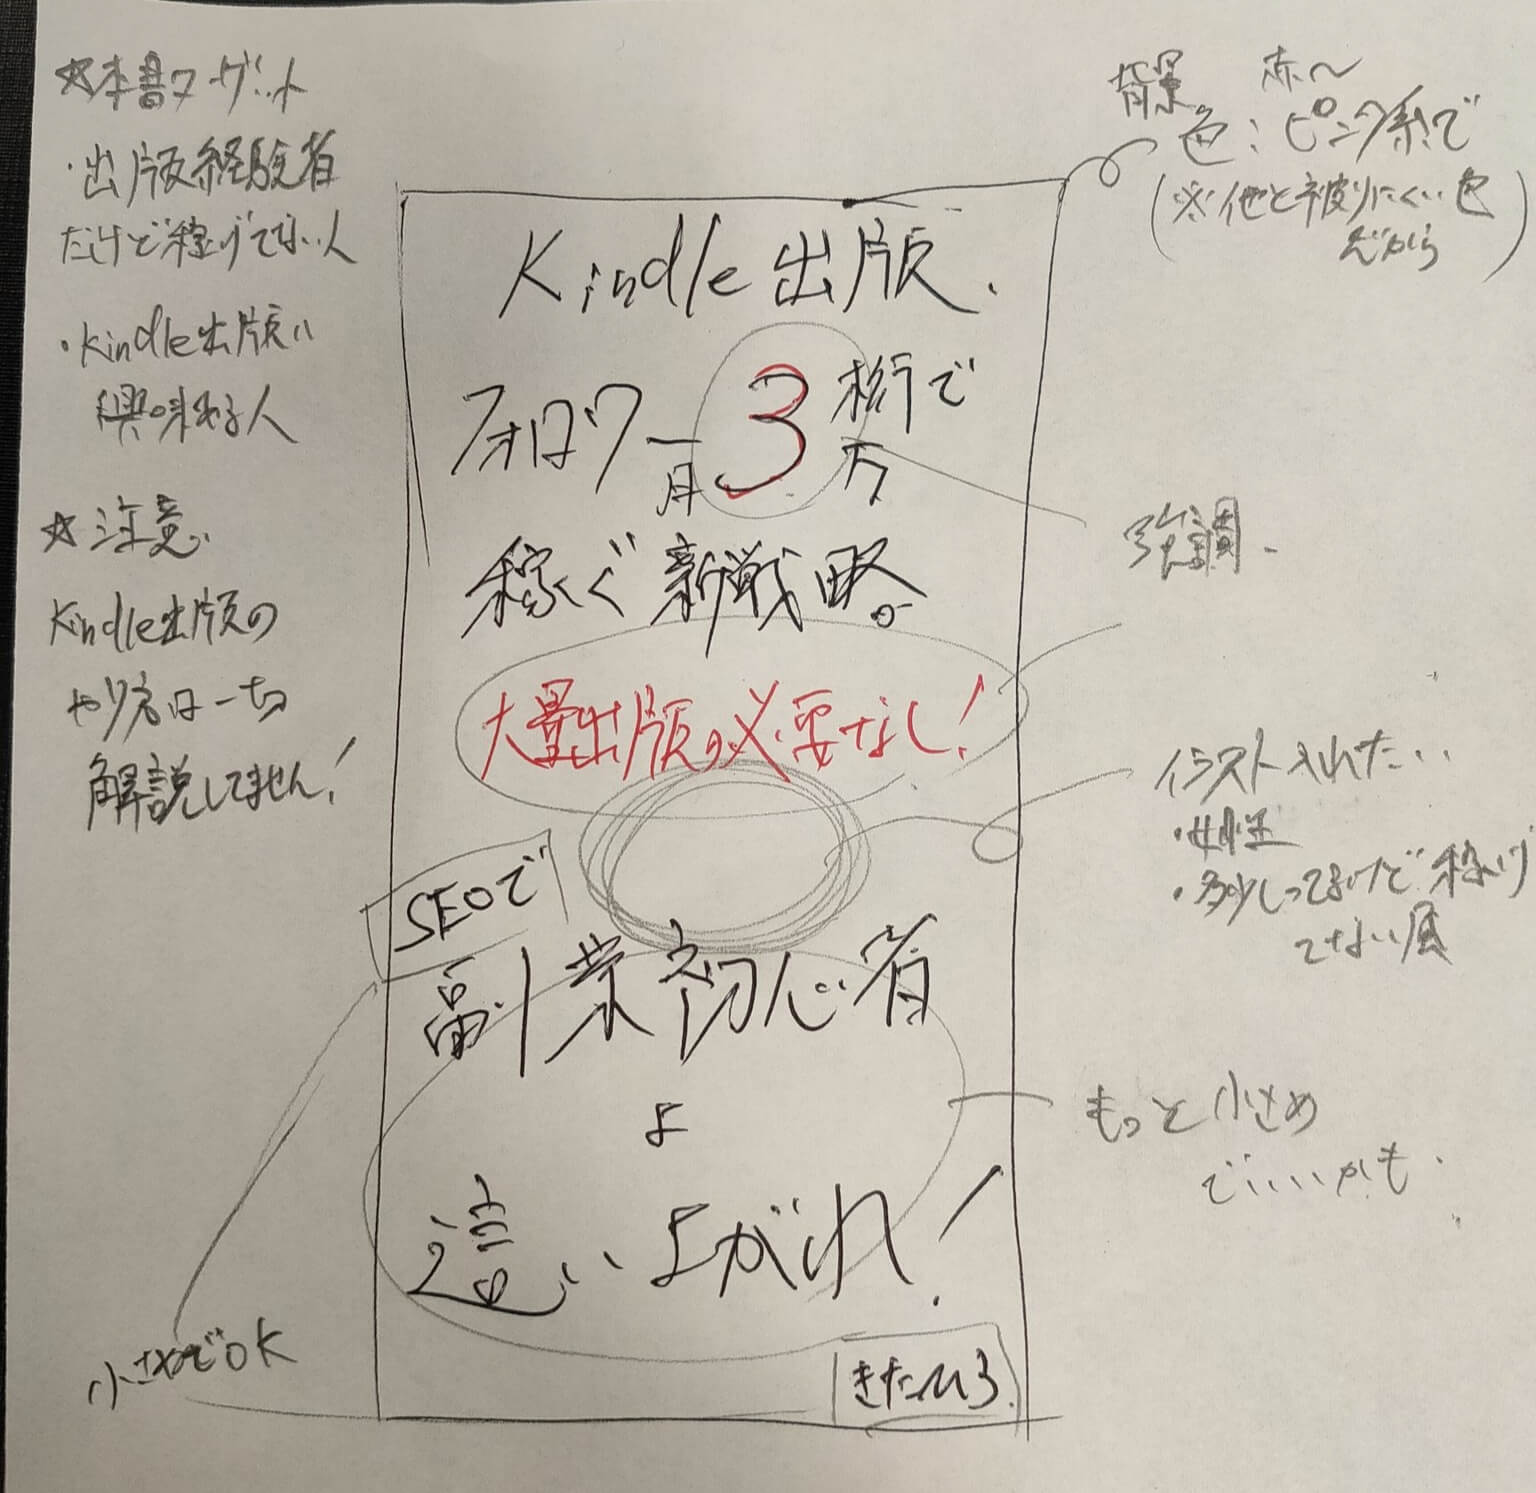 ☆本書ターゲット
・出版経験者
だけど稼げてない人
・Kindle出版に
興味ある人
☆注意
Kindle出版の
やり方は一切
解説してません!
小さめでOK
Kindle出版
フォロワー3桁で
月3万
稼ぐ新戦略。
大量出版の必要なし!
SEOで
副業初心者
よ
這いよがれ!
きたひろ
背景 赤〜
色:ピンク系で
(※他と被りにくい色
だから)
強調
イラスト入れたい
・女性
・多少しってるけど稼げ
てない風
もっと小さめ
でいいかも